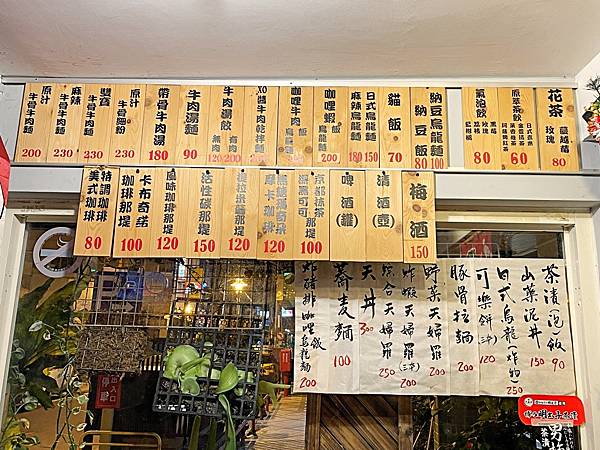 花茶
玫瑰
蔓越莓
80
原萃茶飲
60
氣泡飲
80
納豆烏龍麵
納豆飯
80 100
貓飯
70
日式烏龍麵
麻辣烏龍麵
180 150
咖哩蝦飯
200
咖哩牛肉烏龍麵
200
XO醬牛肉乾拌麵
200
牛肉湯餃
無肉 有肉
120 200
牛肉湯麵
90
帶骨牛肉湯
180
原汁
牛骨細粉
230
雙寶
牛骨牛肉麵
230
麻辣
牛骨牛肉麵
230
原汁
牛骨牛肉麵
200
梅酒
150
清酒(壺)
啤酒(罐)
京都抹茶那堤
100
120
摩卡咖啡
120
活性碳那堤
150
風味咖啡那堤
120
卡布奇諾
咖啡那堤
100
特調咖啡
美式咖啡
80
茶漬泡飯
90
山藥泥丼
150
日式烏龍(炸物)
250
可樂餅
120
豚骨拉麵
200
野菜天婦羅
200
炸蝦天婦羅
200
綜合天婦羅
250
天丼
300
蕎麥麵
100
炸豬排咖哩烏龍麵
200
出入口
停車